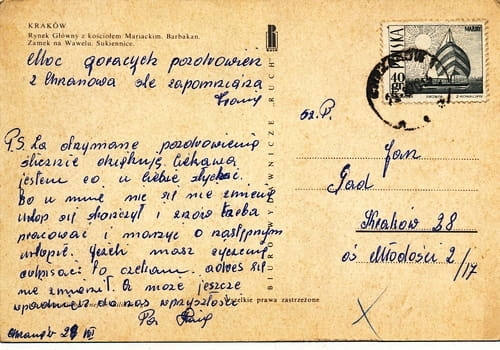 KRAKÓW
Rynek Główny z kościołem Mariackim. Barbakan.
Zamek na Wawelu. Sukiennice.
Moc gorących pozdrowień
z Chranowa śle zapomniana
P.S. Za otrzymane pozdrowienia
ślicznie dziękuję. Ciekawa
jestem co u Ciebie słychać.
Bo u mnie nic się nie zmieniło
urlop się skończył i znów trzeba
pracować i marzyć o następnym
urlopie. Jeżeli masz życzenie
odpisać to czekam. adres się
nie zmienił. A może jeszcze
wpadniesz do nas w przyszłości
Pa
Chranów 29 VIII
BIURO WYDAWNICZE „RUCH"
Wszelkie prawa zastrzeżone
POLSKA
40
gr
Sz. P.
Jan
Gad
Kraków 28
oś Młodości 2/17